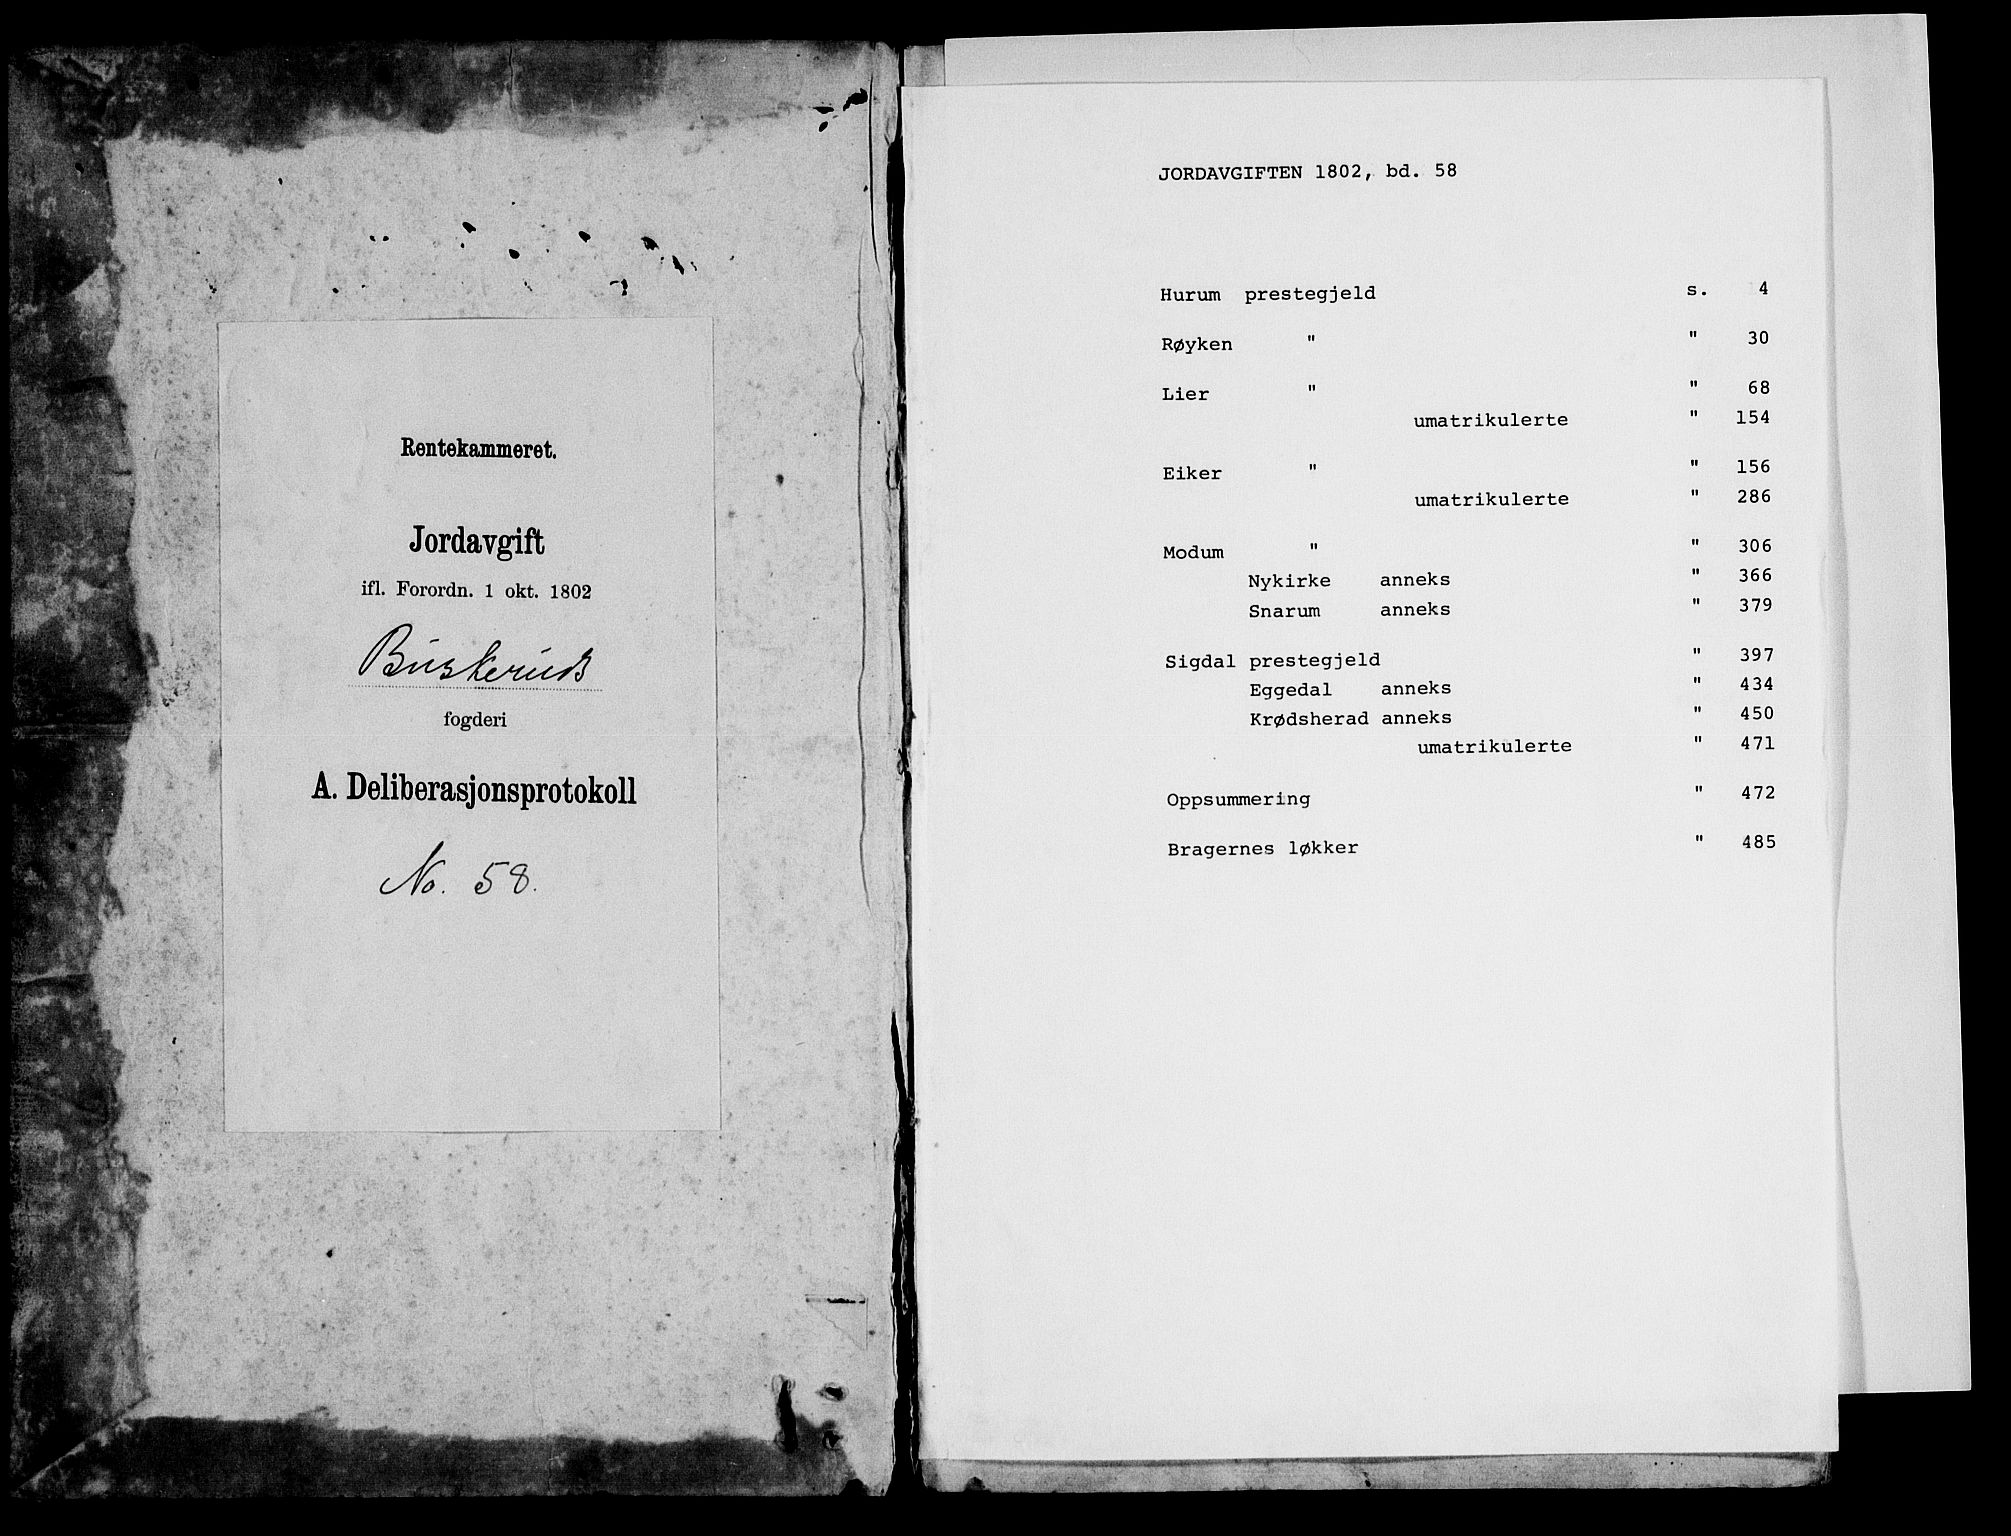 Rentekammeret.
Jordavgift
ifl. Forordn. 1 okt. 1802
Buskeruds
fogderi
A. Deliberasjonsprotokoll
No. 58.
JORDAVGIFTEN 1802, bd. 58
Hurum prestegjeld s. 4
Røyken " " 30
Lier " " 68
umatrikulerte " 154
Eiker " " 156
umatrikulerte " 286
Modum " " 306
Nykirke anneks " 366
Snarum anneks " 379
Sigdal prestegjeld " 397
Eggedal anneks " 434
Krødsherad anneks " 450
umatrikulerte " 471
Oppsummering " 472
Bragernes løkker " 485